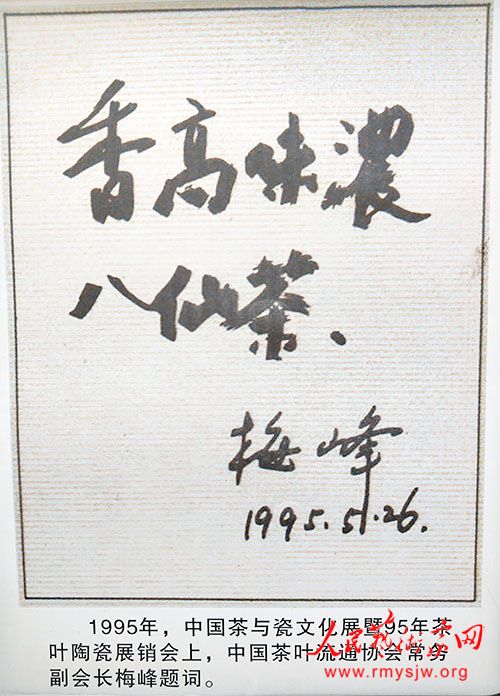 香高味濃
八仙茶、
梅峰
1995.5.26.
1995年，中国茶与瓷文化展暨95年茶
叶陶瓷展销会上，中国茶叶流通协会常务
副会长梅峰题词。
人民艺术家网
www.rmysjw.org